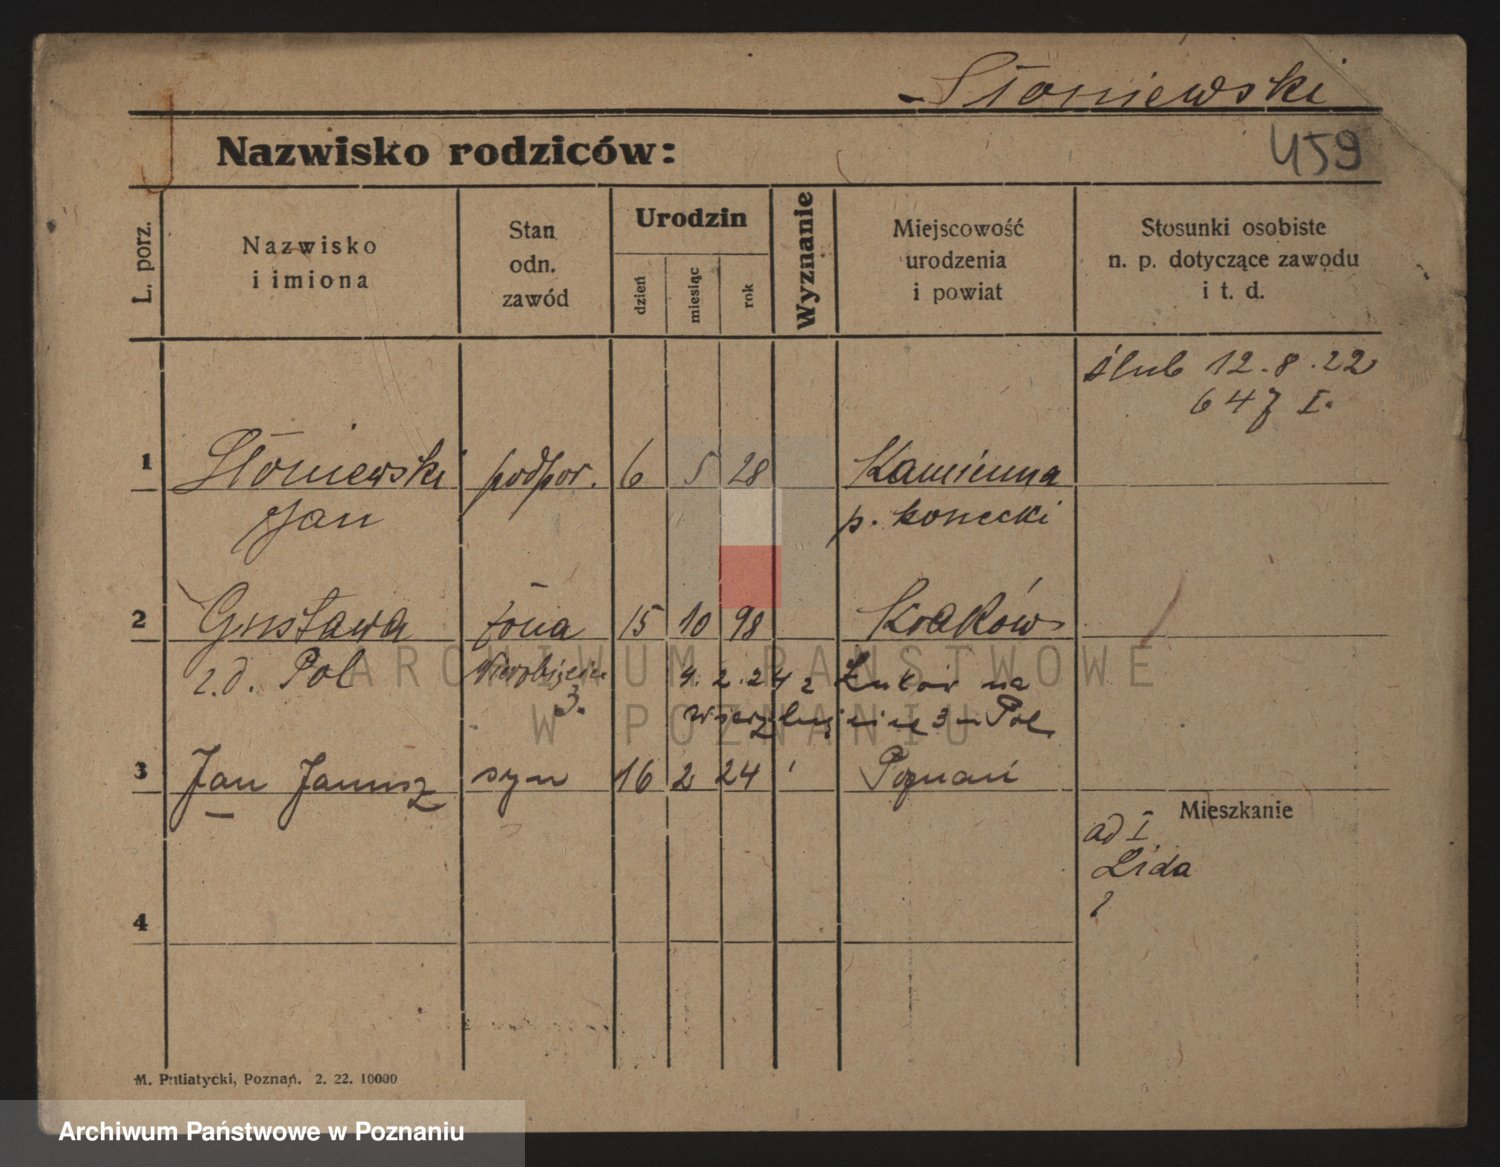 Słoniewski
459
Nazwisko rodziców:
L. porz.
Nazwisko
i imiona
Stan
odn.
zawód
Urodzin
dzień
miesiąc
rok
Wyznanie
Miejscowość
urodzenia
i powiat
Stosunki osobiste
n. p. dotyczące zawodu
i t. d.
ślub 12.8.22
647 I.
1 Słoniewski podpor. 6 5 28 Kamienna
Jan p. konecki
2 Gustawa żona 15 10 98 Kraków
z.d. Pol 4.2.24 z na
3 Pol
3 Jan Janusz syn 16 2 24 Poznań
Mieszkanie
ad I
Lida
4
ARCHIWUM PAŃSTWOWE
W POZNANIU
M. Putiatycki, Poznań. 2. 22. 10000
Archiwum Państwowe w Poznaniu